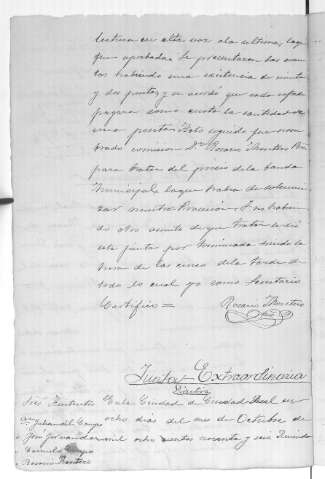 lectura en alta voz ala ultima, la q
fue aprobada, Se presentaron las cuen
tas habiendo una existencia de veinte
y dos pesetas, y se acordó que cada cofrade
pagara como cuota la cantidad de
una peseta. Acto seguido fue nom
brado comision Dn Rosario Montero
para tratar del precio de la banda
Municipal la que habia de solemni
zar nuestra Procesion. Y no habien
do otro asunto de que tratar se dió
esta junta por terminada siendo la
hora de las cinco de la tarde de
todo lo cual yo como Secretario
Certifico =
Rosario Montero
Junta Extraordinaria
Sres Existentes En la Ciudad de Ciudad Real en
ocho dias del mes de Octubre de
mil ocho cientos noventa y seis Reunidos
Rosario Montero